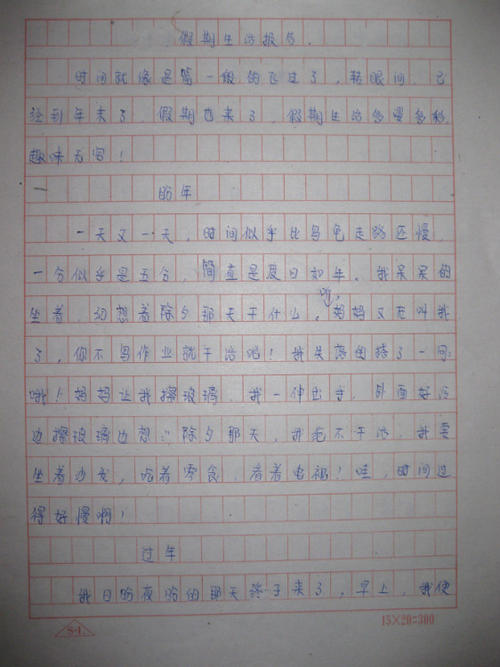 假期生活报告.
时间就像是箭一般的飞过了,转眼间,已
经到年末了,假期也来了,假期生活多么多彩,
趣味无穷!
盼年
一天又一天,时间似乎比乌龟走路还慢,
一分似乎是五分,简直是度日如年。我呆呆的
坐着,幻想着除夕那天干什么,妈妈又在叫我
了,你不写作业就干活吧!我失落的答了一句:
哦!妈妈让我擦玻璃,我一伸出手,外面好冷
边擦玻璃边想:除夕那天,我绝不干活,我要
坐着沙发,吃着零食,看着电视!哇,时间过
得好慢啊!
过年
我日盼夜盼的那天终于来了,早上,我便
S-1
15×20=300